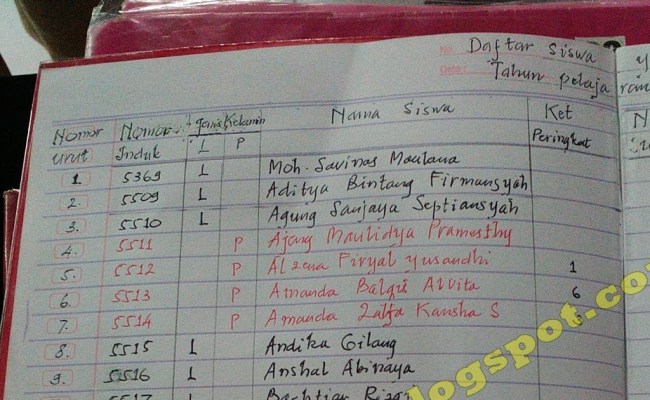 No: Daftar Siswa
Date: Tahun pelaja
Nomor Urut Nomor Induk Jenis Kelamin L P Nama Siswa Ket Peringkat
1. 5369 L Moh. Savinas Maulana
2. 5509 L Aditya Bintang Firmansyah
3. 5510 L Agung Sanjaya Septiansyah
4. 5511 P Ajeng Maulidya Pramesthy
5. 5512 P Alzena Firyal Yusandhi 1
6. 5513 P Amanda Balqis Alvita 6
7. 5514 P Amanda Zalfa Kansha S
8. 5515 L Andika Gilang
9. 5516 L Anshal Abinaya
5517 L Bachtiar
logspot.co